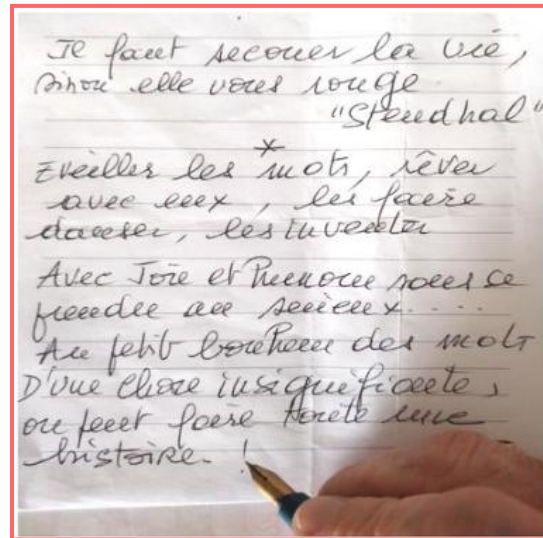 Il faut secouer la vie,
sinon elle vous ronge
"Stendhal"
*
Eveiller les mots, rêver
avec eux, les faire
danser, les inventer
Avec Joie et Humour sans se
prendre au sérieux....
Au petit bonheur des mots
D'une chose insignifiante,
on peut faire toute une
histoire. !